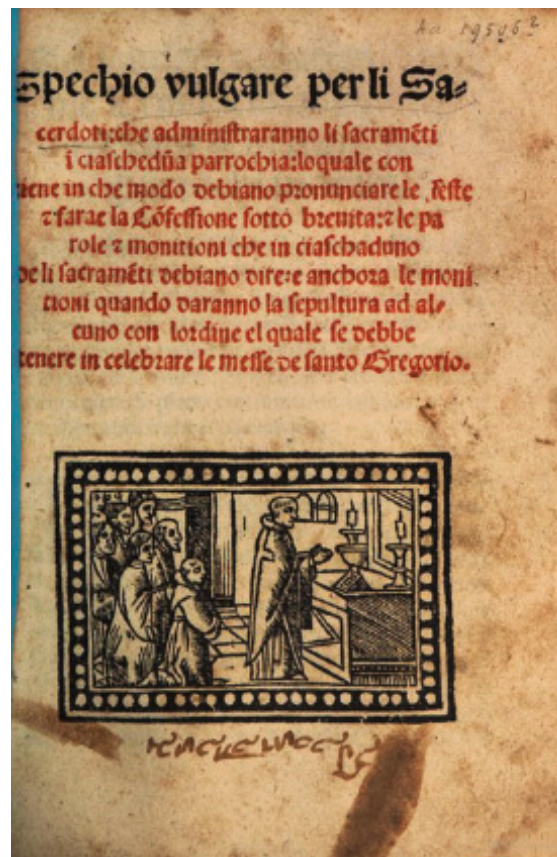 ha 19506²
Spechio vulgare per li Sa⸗
cerdoti:che administraranno li sacramēti
ī ciaschedũa parrochia:loquale con
tiene in che modo debiano pronunciare le feste
⁊ farae la Cōfessione sotto breuita:⁊ le pa
role ⁊ monitioni che in ciaschaduno
de li sacramēti debiano dire:e anchora le moni
tioni quando daranno la sepultura ad al⸗
cuno con lordine el quale se debbe
tenere in celebrare le messe de santo Gregorio.